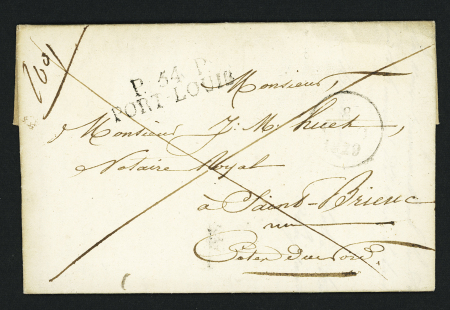 P. 54. P.
PORT-LOUIS
Monsieur,
Monsieur J. M. huet,
Notaire Royal
à Saint-Brieuc
Côtes du Nord.
1829